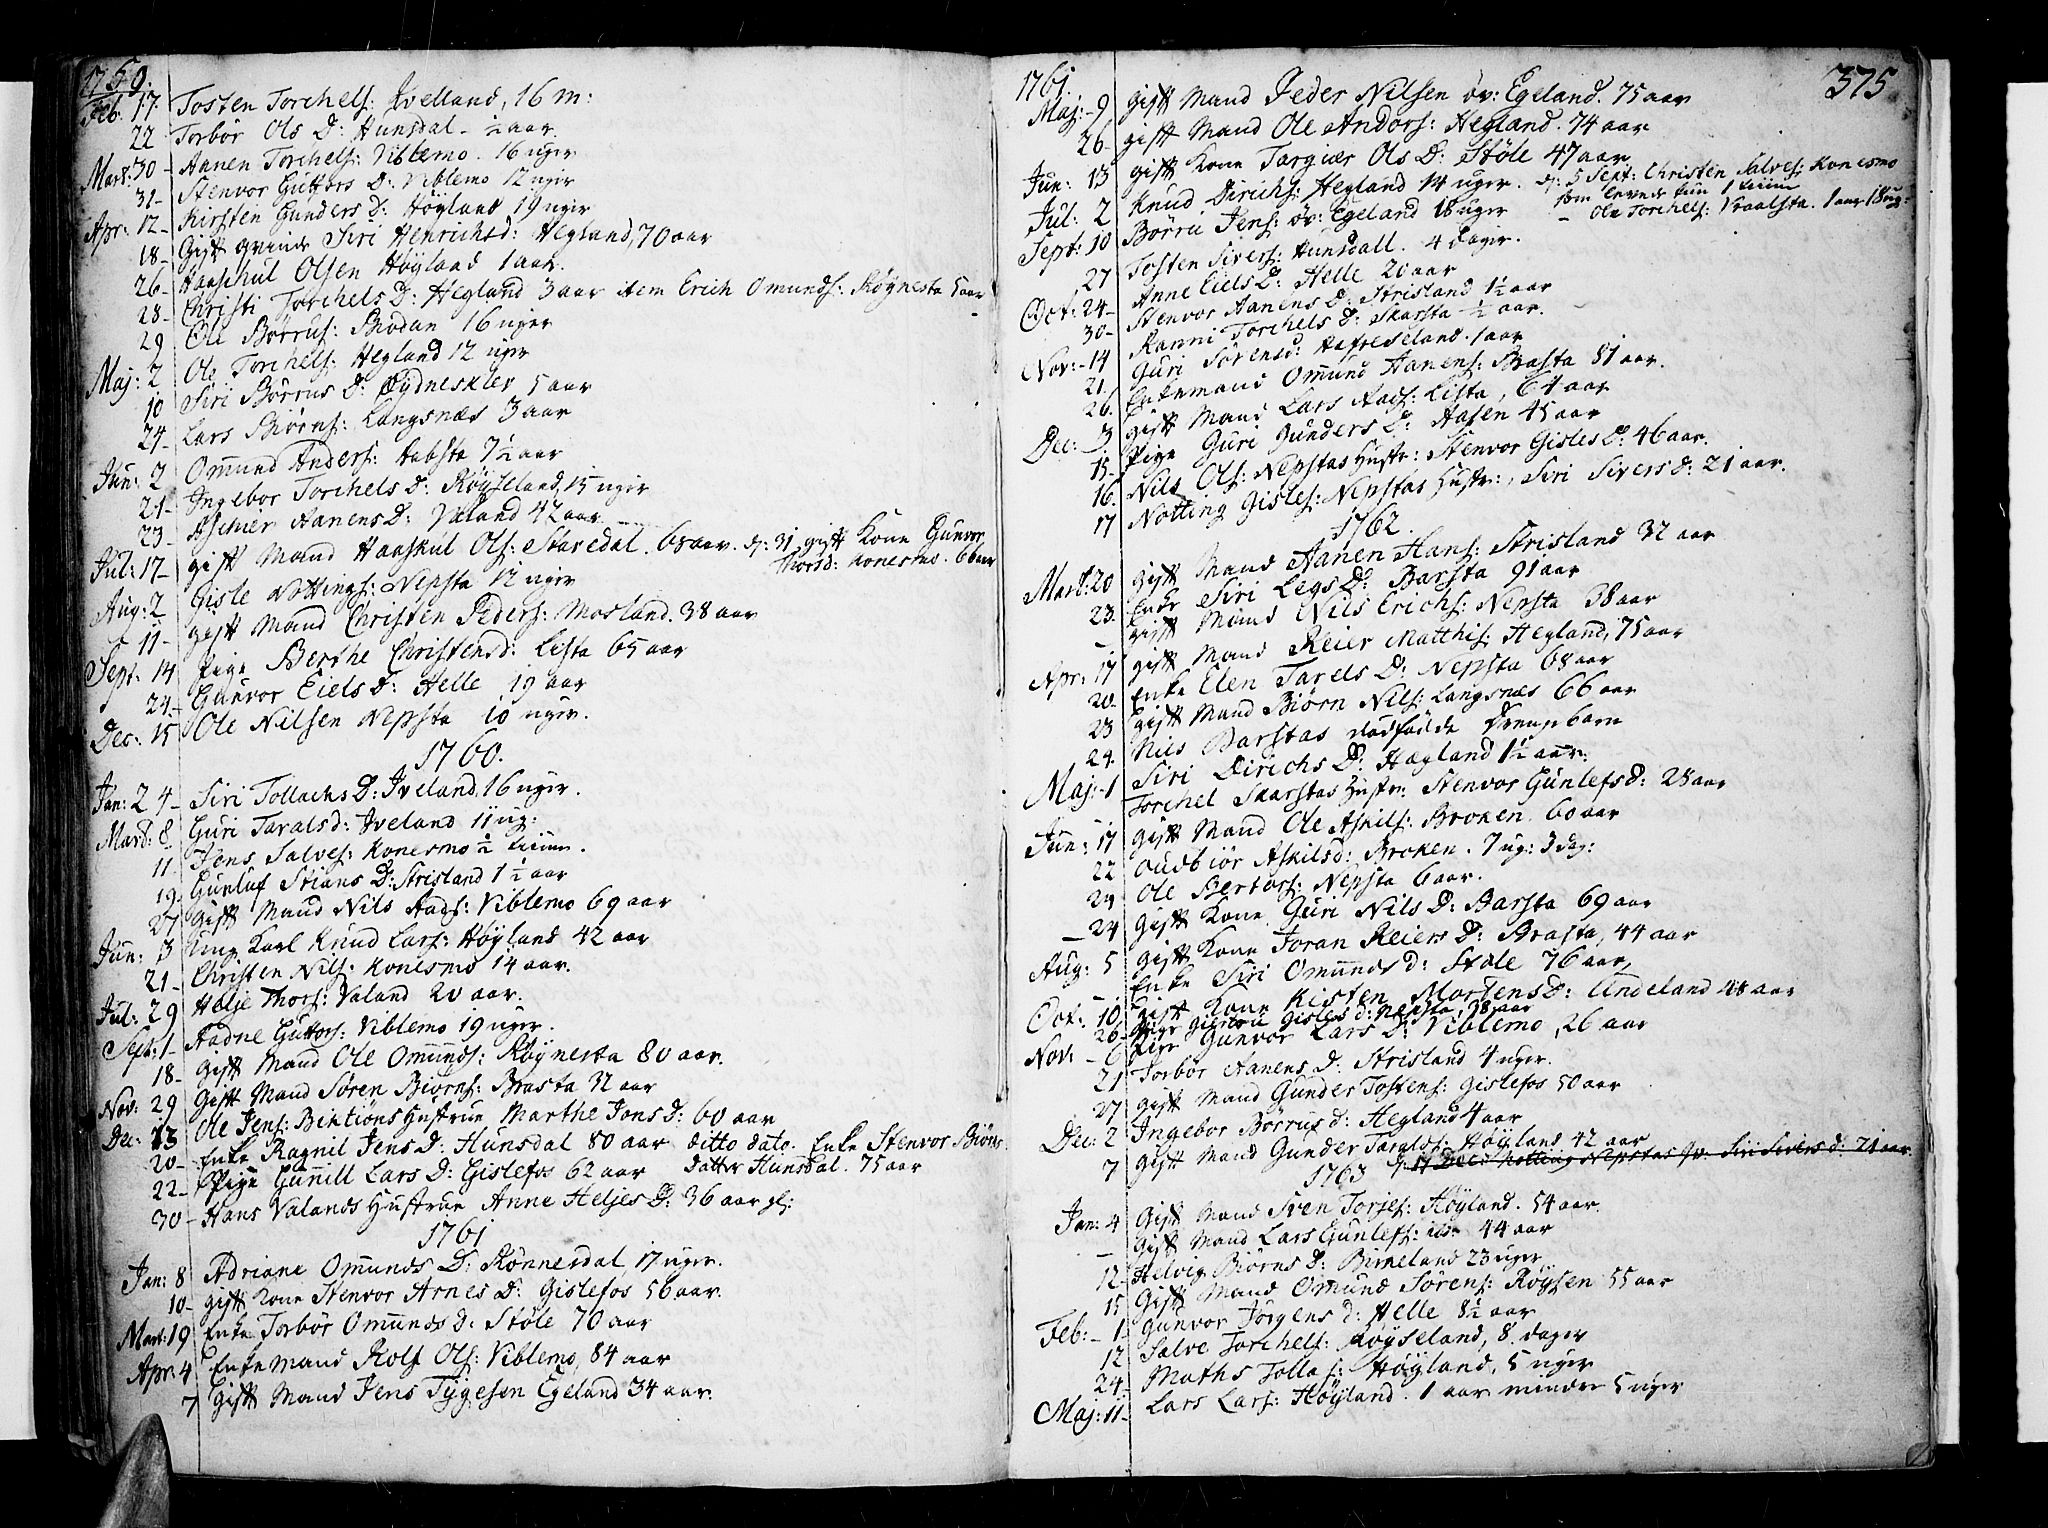 1759.
Feb: 17. Tosten Torchels: Qvelland, 16 m:
22 Torbör Ols D: Hunsdal - ½ aar.
Mart: 30 - Aanen Torchels: Viblemo. 16 uger
31 - Stenvor Guttors D: Viblemo 12 uger
Apr: 12 - Kirsten Gunders D: Höyland 19 uger
18 - Gift qvinde Siri Henrichsd: Hegland, 70 aar
26 - Haaskul Olsen Höyland 1 aar.
28 - Christi Torchels D: Hegland 3 aar item Erich Omunds: Röynesta 5 aar
29 Ole Börrus: Modan 16 uger
Maj: 2 Ole Torchels: Hegland 12 uger
10 Siri Börrus D: Ρydneskler 5 aar
24 - Lars Biörns: Langsnæs 3 aar
Jun: 2 Omund Anders: Aabsta 7½ aar
21 - Ingebor Torchels D: Röyseland, 15 uger
23 - Aanens D: Valand 42 aar
Jul: 17 - gift Mand Haaskul Ols: Staredal. 68 aar. d: 31 gift Kone Gunvor
Thorsd: Konesmo. 66 aar
Aug: 2 Gisle Nottings: Nepsta 12 uger
11 - gift Mand Christen Peders: Mosland. 38 aar
Sept: 14 Pige Berthe Christensd: Lista 65 aar
24 - Gunvor Eiels D: Helle 19 aar
Dec: 15 Ole Nilsen Nepsta 10 uger.
1760.
Jan: 24 - Siri Tollachs D: Iveland, 16 uger.
Mart: 8. Guri Taralsd: Iveland 11 ug:
11 Jens Salves: Konesmo ½ time.
19 Gunluf Stians D: Strisland 1½ aar
27 gift Mand Nils Aads: Viblemo 69 aar
Jun: 3 Ung Karl Knud Lars: Höyland 42 aar
21 - Christen Nils: Konesmo 14 aar.
Jul: 29 Helje Thors: Valand 20 aar.
Sept: 1 - Aadne Guttors: Viblemo 19 uger.
18 - gift Mand Ole Omunds: Röynesta 80 aar.
Nov: 29 Gift Mand Sören Biörns: Brasta 32 aar
Dec: 13 Ole Jens: Birkiöns Hustrue Marthe Jons D: 60 aar
20 - Enke Ragnil Jens D: Hunsdal 80 aar ditto dato. Enke Stenvor Biörns
22 - Pige Gunill Lars D: Gislefos 62 aar Datter Hunsdal. 75 aar
30 - Hans Valands Hustrue Anne Heljes D: 36 aar gl:
1761
Jan: 8 Adriane Omunds D: Rönnesdal, 17 uger.
10 - gift Kone Stenvor Arnes D: Gislefos 56 aar.
Mart: 19 Enke Torbör Omunds D: Stöle 70 aar
Apr: 4 Enkemand Rolf Ols: Viblemo, 84 aar
7 gift Mand Jens Tygesen Egeland 34 aar.
1761. 375
Maj: - 9 gift Mand Peder Nilsen öv: Egeland. 75 aar
26 - gift Mand Ole Andors: Hegland. 74 aar
Jun: 13 gift Kone Targier Ols D: Stöle 47 aar
Jul: 2 Knud Dirichs: Hegland 14 uger. d: 5 Sept: Christen Salves: Konesmo
som levede kun 1 time
Sept: 10 Börru Jens: öv: Egeland 18 uger - Ole Torchels: Traalsta. 1 aar 18 ug:
27 Tosten Sivers: Hunsdall. 4 dager.
Oct: 24 - Anne Eiels D: Helle 20 aar
30 - Stenvor Aanens D: Strisland 1½ aar
Nov: - 14 Ranni Torchels D: Skarsta - ½ aar.
21. Guri Sörensd: Hefreseland. 1 aar
26. Enkemand Omund Aanens: Brasta 81 aar.
Dec: 3 gift Mand Lars Aads: Lista, 64 aar
15 - Pige Guri Gunders D: Aasen 45 aar
16. Nils Ols: Nepstas Hustr: Stenvor Gisles D: 46 aar.
17 Notting Gisles: Nepstas Hustr:, Siri Sivers D: 21 aar.
1762.
Mart: 20 gift Mand Aanen Hans: Strisland 32 aar
23. Enke Siri Legs D: Barsta 91 aar
- gift Mand Nils Erichs: Nepsta 38 aar
Apr: 17 gift Mand Reier Matthis: Hegland, 75 aar
20 - Enke Elen Tarels D: Nepsta 68 aar
23 gift Mand Biörn Nils: Langsnæs 66 aar
24. Nils Barstas dödfödde Drengebarn
Maj: - 1 Siri Dirichs D: Hægland 1½ aar.
- Torchel Skarstas Hustr: Stenvor Gunlefs D: 28 aar
Jun: 17 gift Mand Ole Askils: Broken. 60 aar
22 Oudbiör Askilsd: Broken. 7 ug: 3 dag:
24 Ole Bertors: Nepsta 6 aar.
- 24 gift Kone Guri Nils D: Barsta 69 aar
Aug: 5 gift Kone Joran Reiers D: Brasta, 44 aar
- Enke Siri Omunds D: Stöle 76 aar,
Oct: 10 gift Kone Kisten Mortens D: Undeland 48 aar
26 - Pige Gunvor Gisles D: Nepsta, 38 aar
Nov: - 6 Pige Gunvor Lars D: Viblemo, 26 aar
21 Torbör Aanens D: Strisland 4 uger.
27 gift Mand Gunder Tostens: Gislefos 50 aar
Dec: 2 Ingebor Börrus D: Hegland 4 aar
7 gift Mand Gunder Taralds: Höyland 42 aar
1763 d: 17 Dec: Notting Nepstas Hu: Siri Sivers d: 21 aar.
Jan: 4 gift Mand Sven Torjes: Höyland. 54 aar.
- gift Mand Lars Gunlefs: ibid: 44 aar
12 - Helvig Biörns D: Birkeland 23 uger
15 gift Mand Omund Sörens: Röysen 55 aar
Feb: - 1 - Gunvor Jörgens D: Helle 8½ aar
12 Salve Torchels: Röyseland, 8 dager
24. Maths Tollas: Höyland, 5 uger
Maj: 11 - Lars Lars: Höyland. 1 aar mindre 5 uger